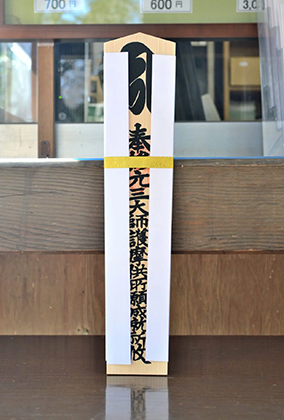 700円
600円
3,0
奉修元三大師護摩供所願成就祈攸